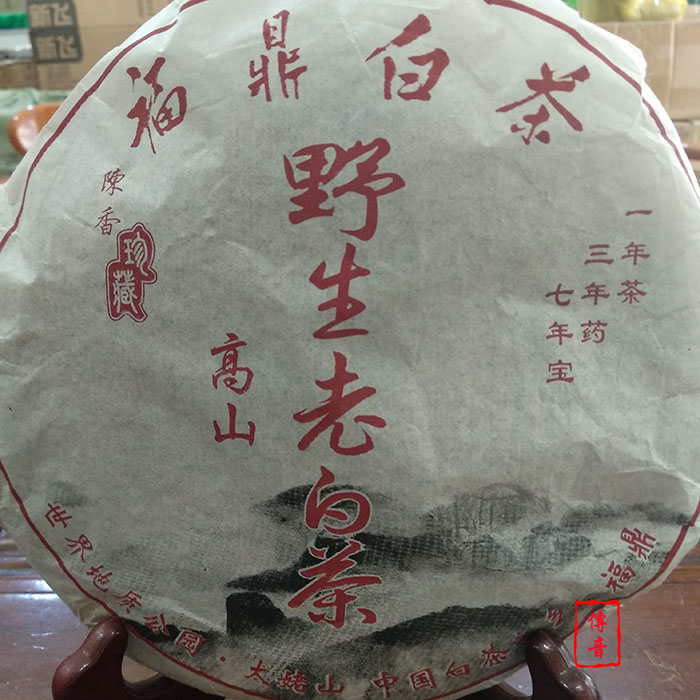 新飞 新飞
福鼎白茶
陳香
珍藏
野生老白茶
高山
一年茶
三年药
七年宝
世界地质公园·太姥山 中国白茶之乡 福鼎
傳音